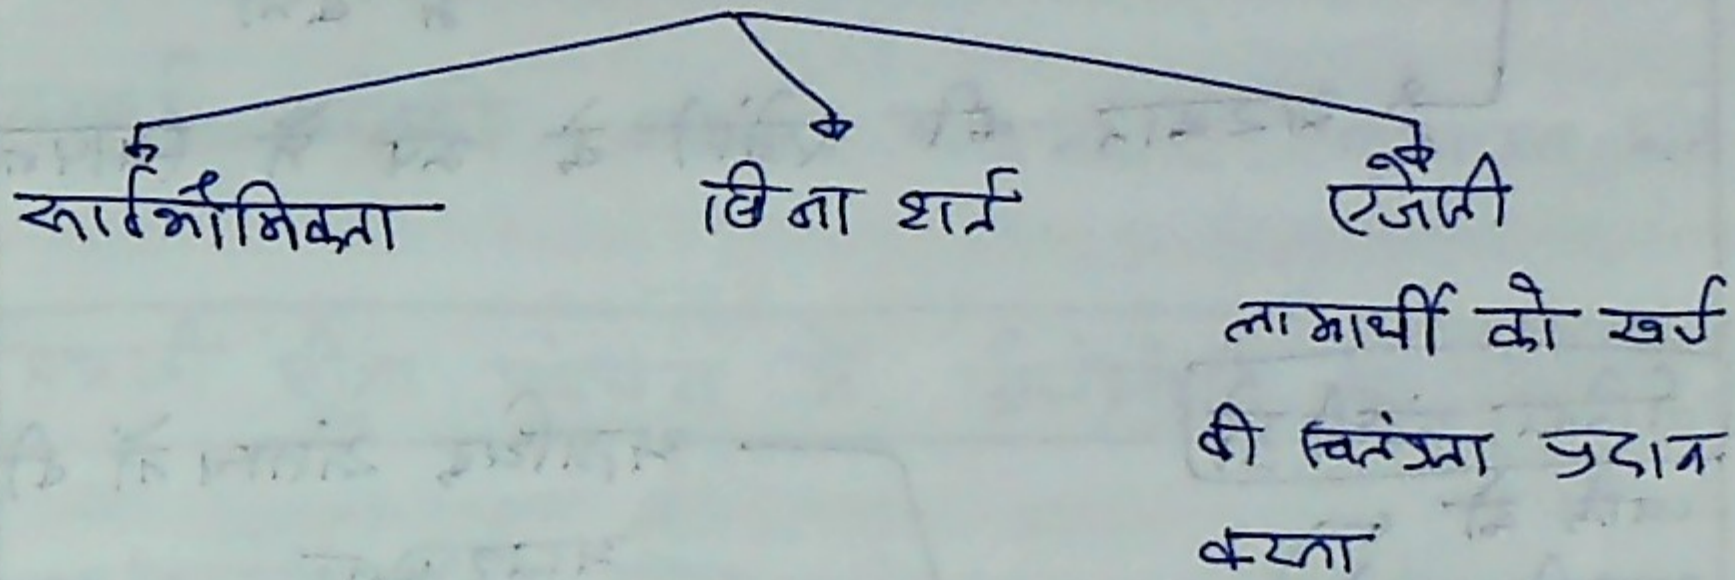 सार्वभौमिकता बिना शर्त एजेंसी
लाभार्थी को खर्च
की स्वतंत्रता प्रदान
करना